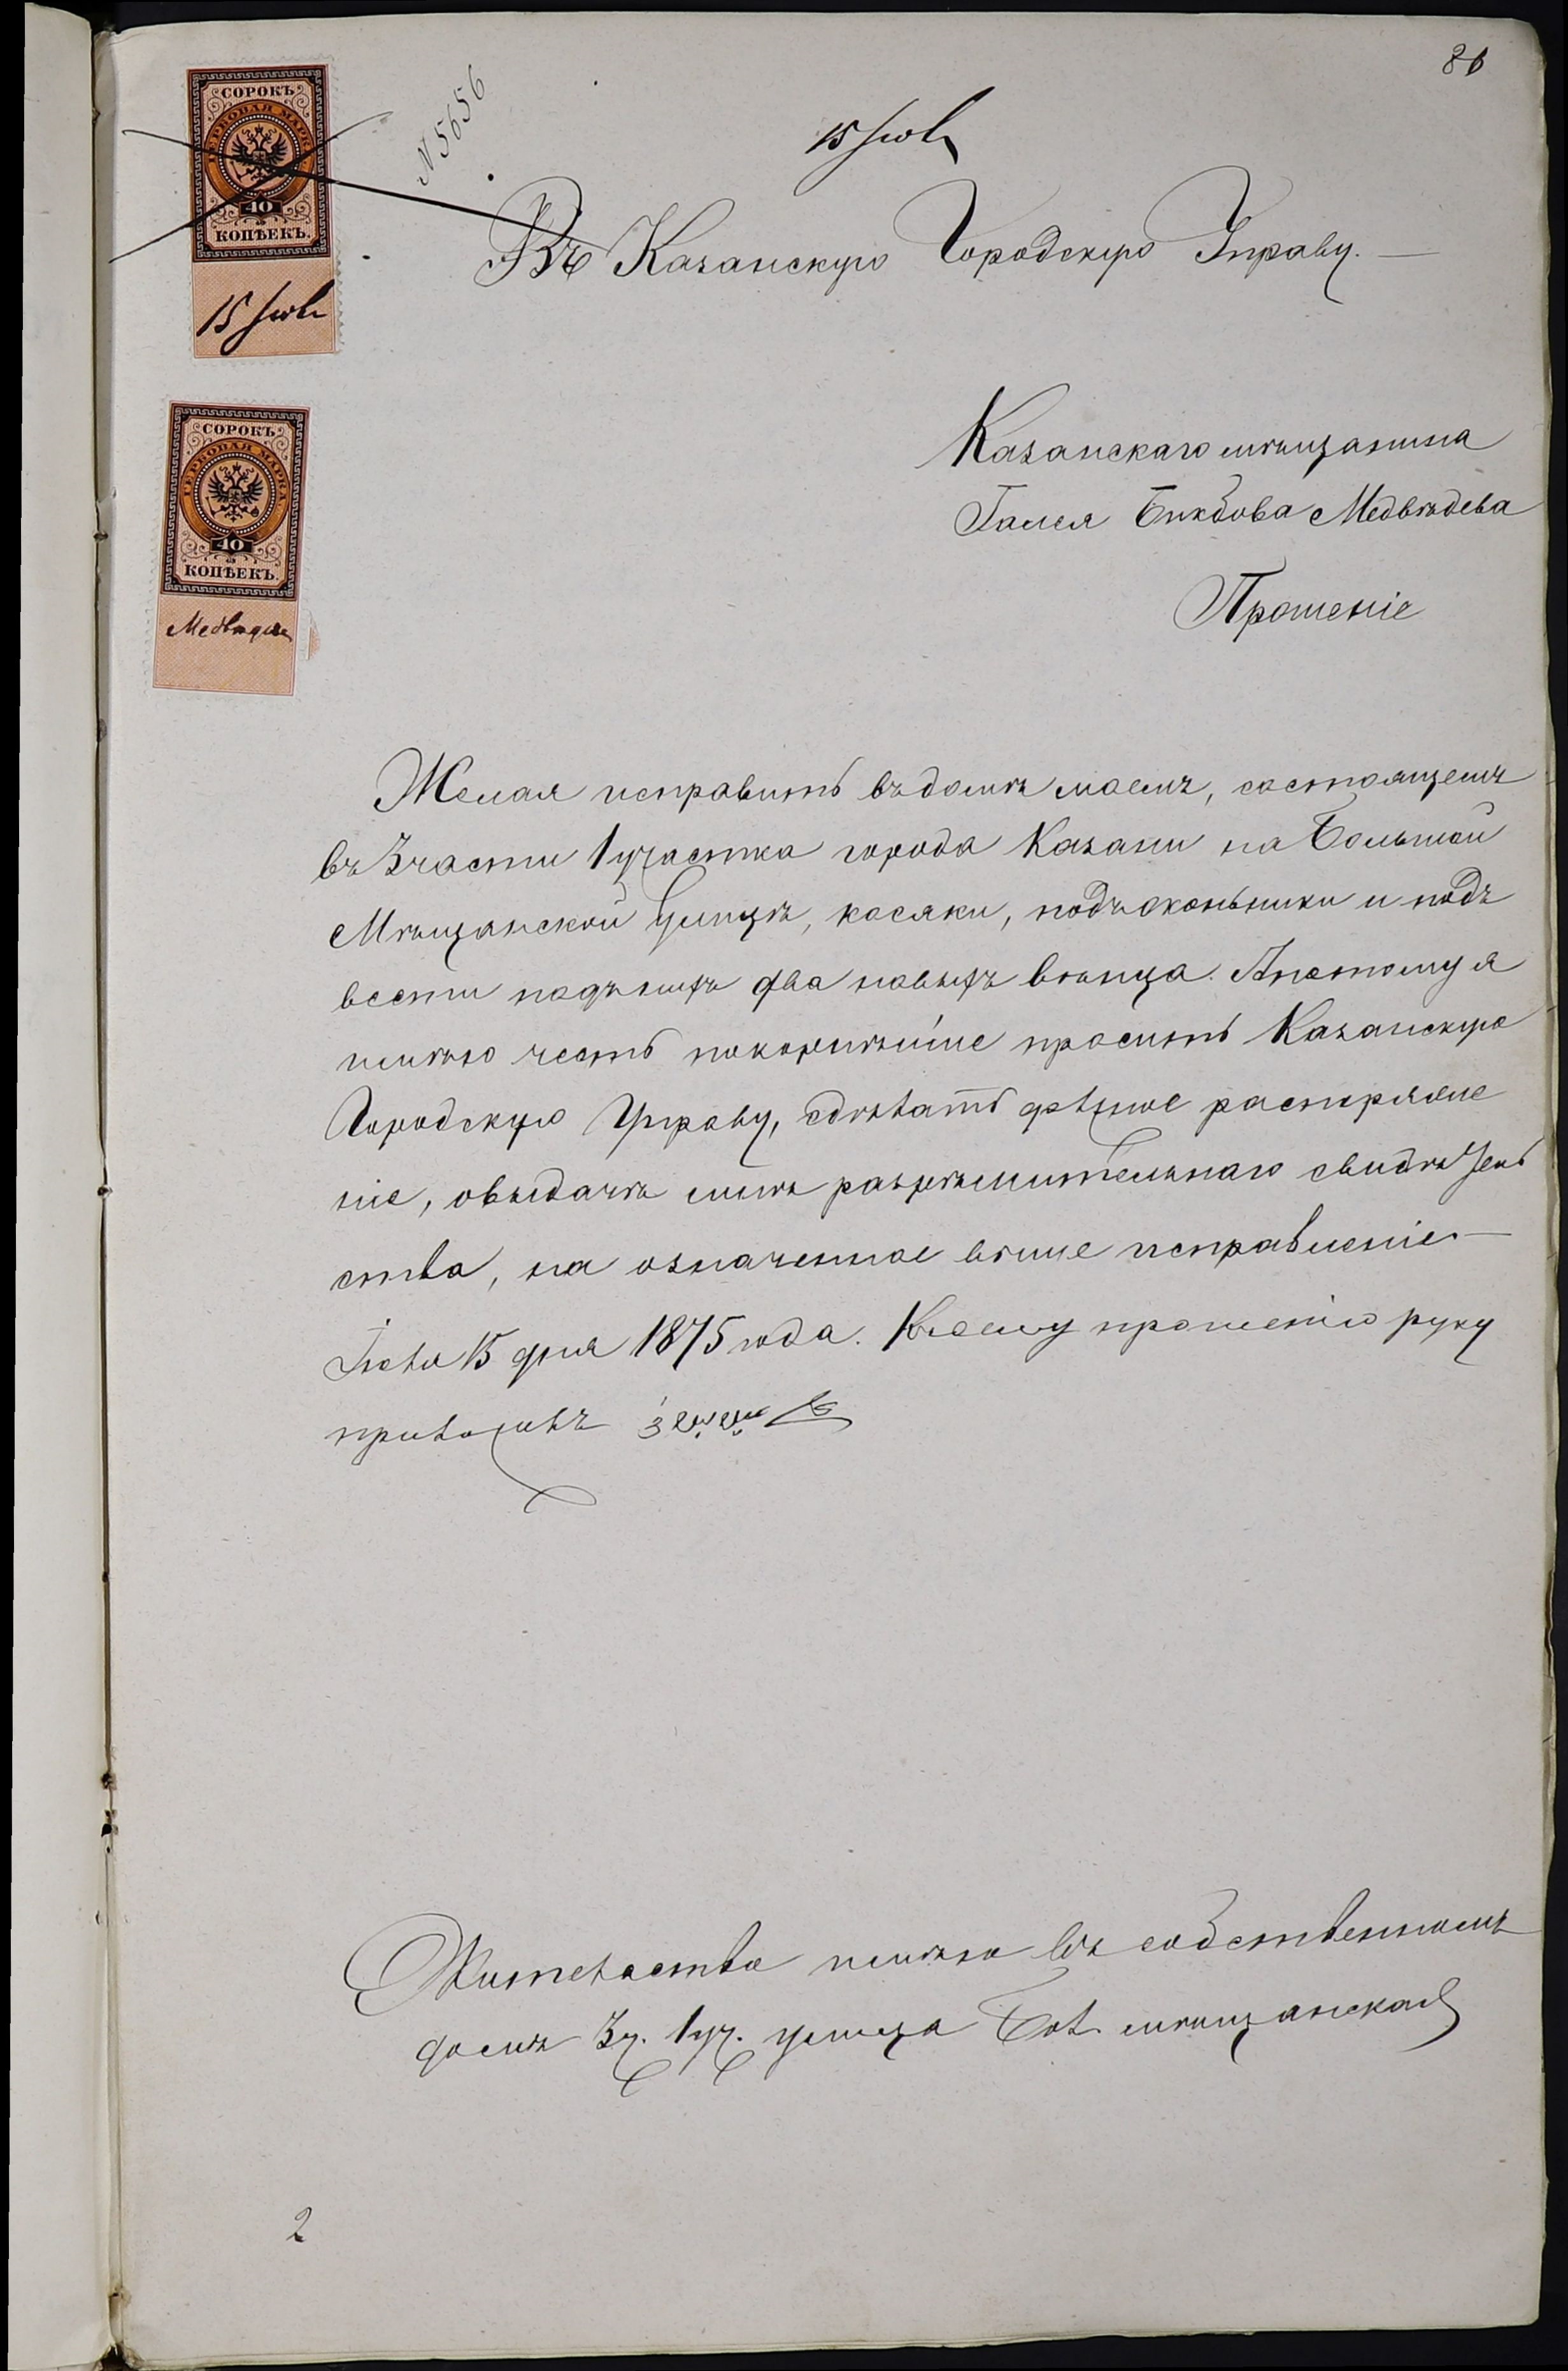 86
СОРОКЪ
ГЕРБОВАЯ МАРКА
40
КОПѢЕКЪ.
15 Іюля
№ 5656
15 Іюля
Въ Казанскую Городскую Управу.
СОРОКЪ
ГЕРБОВАЯ МАРКА
40
КОПѢЕКЪ.
Медвѣдевъ
Казанскаго мѣщанина
Галея Бикбова Медвѣдева
Прошеніе
Желая исправить въ домѣ моемъ, состоящемъ
въ 3 части 1 участка города Казани на Большой
Мѣщанской Улицѣ, косяки, подъоконьники и подъ
вести подъ нихъ два новыхъ вѣнца. Апотому я
имѣю честь покорнѣйше просить Казанскую
Городскую Управу, сдѣлать распоряже
ніе, овыдачѣ мнѣ разрѣшительнаго свидѣтель
ства, на означенное выше исправленіе.—
Іюля 15 дня 1875 года. Ксему прошенію руку
приложилъ
Жителство имѣю въ собственномъ
домѣ 3 ч. 1 уч. улица Бол. мѣщанская
2